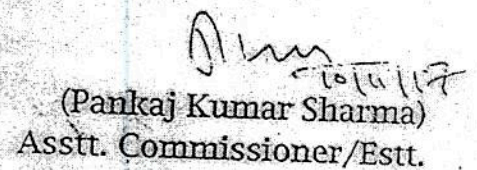 10/11/17
(Pankaj Kumar Sharma)
Asstt. Commissioner/Estt.